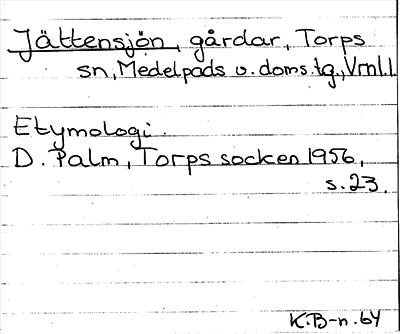 Jättensjön, gårdar, Torps
sn, Medelpads v. doms.tg., Vrnl.l.
Etymologi.
D. Palm, Torps socken 1956,
s.23.
K.B-n.64